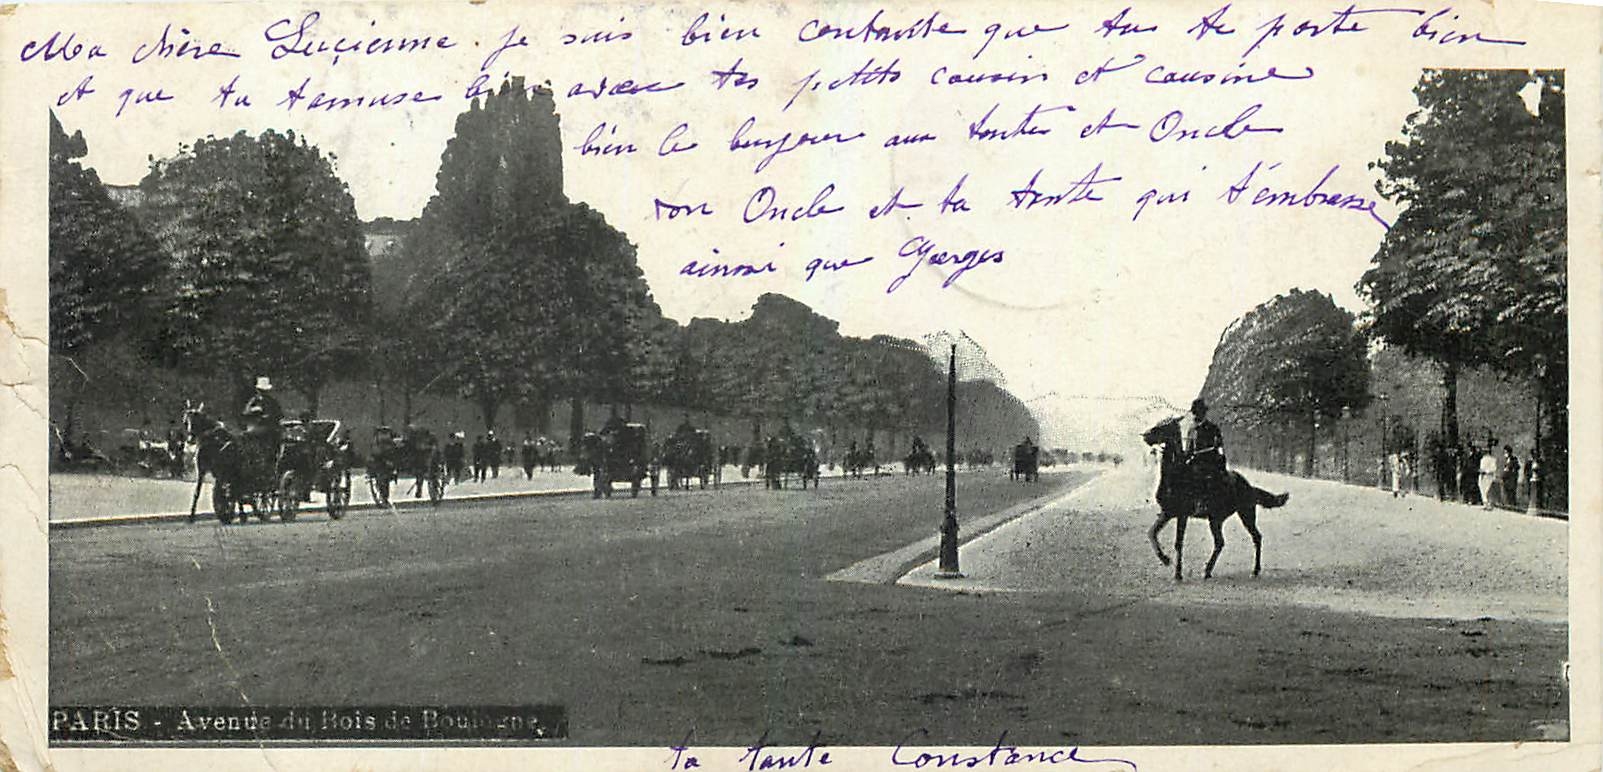 Ma chère Lucienne je suis bien contente que tu te porte bien
et que tu tamuse bien avec tes petits cousin et cousine
bien le bonjour aux tantes et Oncle
ton Oncle et ta tante qui t'embrasse
ainsi que Georges
PARIS - Avenue du Bois de Boulogne
ta tante Constance